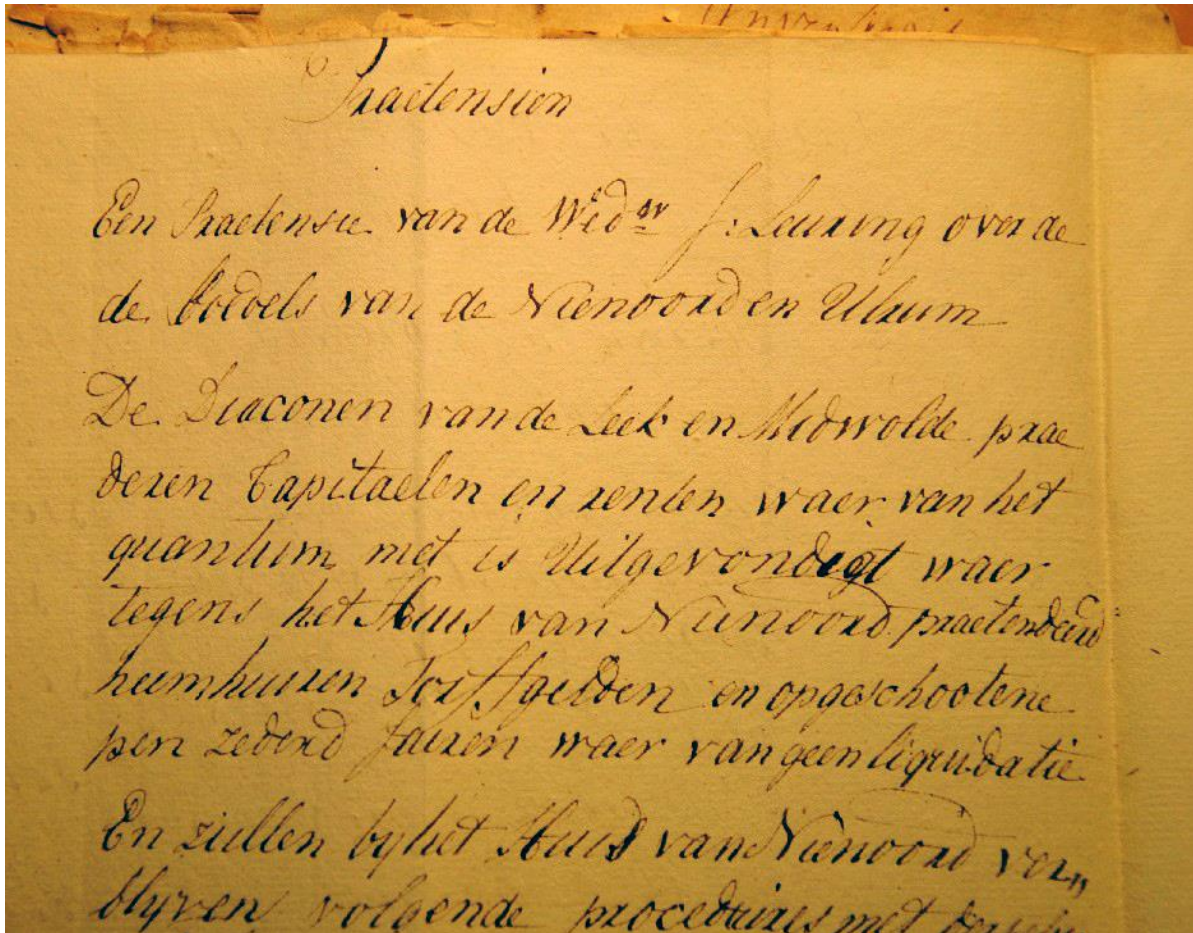 Praetensien
Een Praetensie van de Wed:w J: Leuring over de
de boedels van de Nienoord en Ulrum
De Diaconen van de Leek en Midwolde prae
deren Capitaelen en renten waer van het
quantum niet is Uitgevondigt waer
tegens het Huis van Nienoord praetendeerd
heemhuiren Torffgelden en opgeschootene
pen zederd Jaeren waer van geen liquidatie
En zullen by het Huis van Nienoord ver„
blyven volgende procedures met